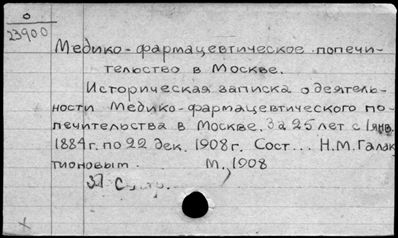 0
23900
Медико-фармацевтическое попечи-
тельство в Москве.
Историческая записка о деятель-
ности Медико-фармацевтического по-
печительства в Москве. За 25 лет с 1 янв.
1884 г. по 22 дек. 1908 г. Сост... Н.М. Галак
тионовым. М., 1908
37